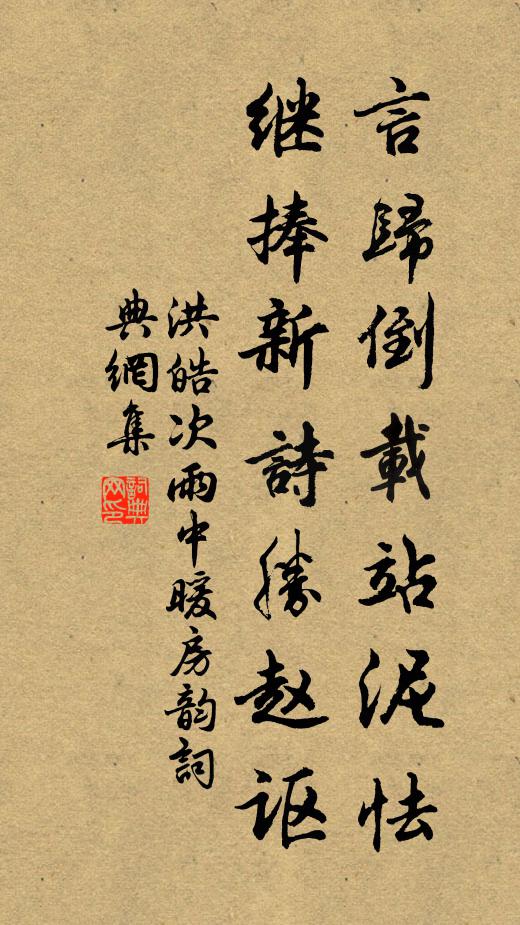 言歸倒載站泥怯
继捧新詩勝赵讴
洪皓次雨中暖房韵詞
典網集
詞典网印